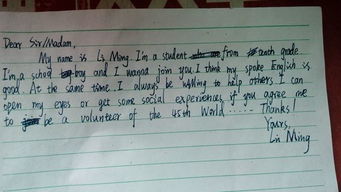 Dear Sir/Madam,
My name is Li Ming. I'm a student from tenth grade
I'm a school boy and I wanna join you. I think my spoke English is
good. At the same time. I always be willing to help others. I can
open my eyes or get some social experiences, if you agree me
to be a volunteer of the 45th World ..... Thanks!
Yours,
Lin Ming